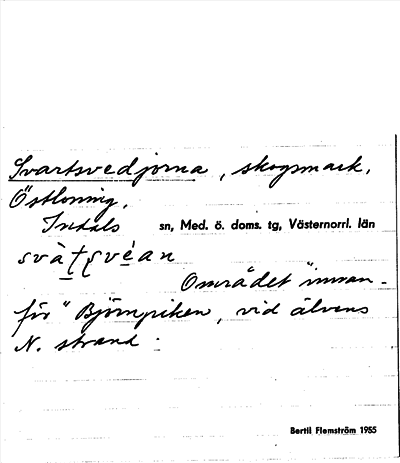 Svartsvedjorna, skogsmark,
Östloning.
Indals sn, Med. ö. doms. tg, Västernorrl. län
svàṭṣvèan
Området "innan-
för" Björnpiken, vid älvens
N. strand.
Bertil Flemström 1955